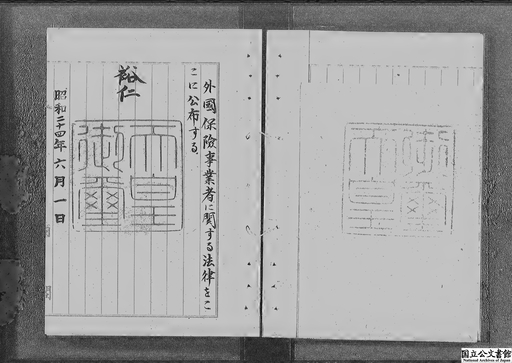 外國保險事業者に関する法律をこ
こに公布する
裕仁
天皇
御璽
昭和二十四年六月一日
国立公文書館
National Archives of Japan